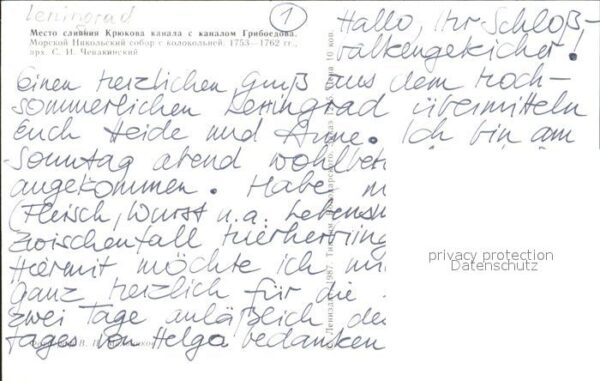 Leningrad
1
Место слияния Крюкова канала с каналом Грибоедова.
Морской Никольский собор с колокольней. 1753—1762 гг.,
арх. С. И. Чевакинский
Hallo, Ihr Schloß-
falkengekicher!
Einen herzlichen Gruß aus dem hoch-
sommerlichen Leningrad übermitteln
euch Heide und Anne. Ich bin am
Sonntag abend wohlbeh
angekommen. Habe m
(Fleisch, Wurst u.a. Lebensm
Zwischenfall hierherring
Hiermit möchte ich mi
ganz herzlich für die
zwei Tage anläßlich de
tages von Helga bedanken
Цена 10 коп.
1987.
privacy protection
Datenschutz